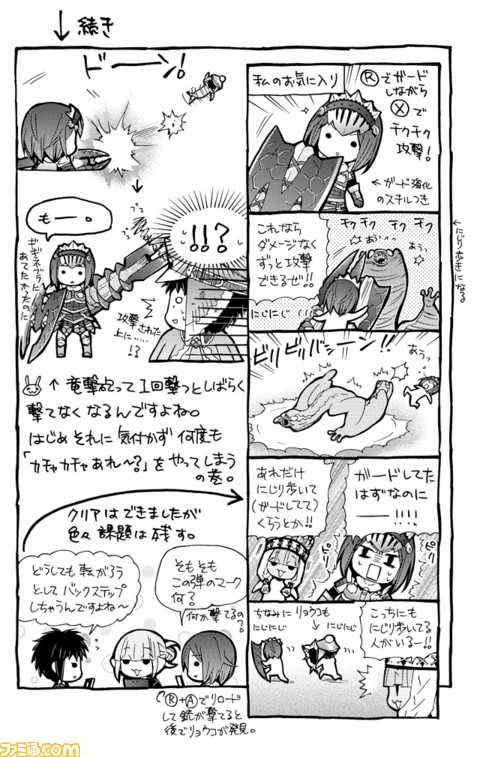 ↓ 続き
ドーン!
もー。
ギギネブラに
あてたかったのに
!!?
攻撃された
上に……
!?
↑ 竜撃砲って1回撃つとしばらく
撃てなくなるんですよね。
はじめそれに気付かず何度も
「カチャカチャあれ〜?」をやってしまう
の巻。
クリアはできましたが
色々課題は残す。
どうしても転がろう
として バックステップ
しちゃうんですよね〜
そもそも
この弾のマーク
何?
何が撃てるの?
Ⓡ+Ⓐでリロード
して銃が撃てると
後でリョウコが発見。
私のお気に入り
Ⓡでガード
しながら
Ⓧで
チクチク
攻撃!
←ガード強化
のスキルつき
これなら
ダメージなく
ずっと攻撃
できるぜ!!
にじにじ
チク チク チク チク
あぅっ
あぅぅ
←にじり歩きになる
ビリビリバシーン!!
あぅっ
ガードしてた
はずなのに
ー!!!!
あれだけ
にじり歩いて
(ガードしてて)
くらうとか!!
ピリ
ピリ
こっちにも
にじり歩いてる
人がいるー!!
ちなみにリョウコも
にじにじ
にじにじ
ファミ通.com